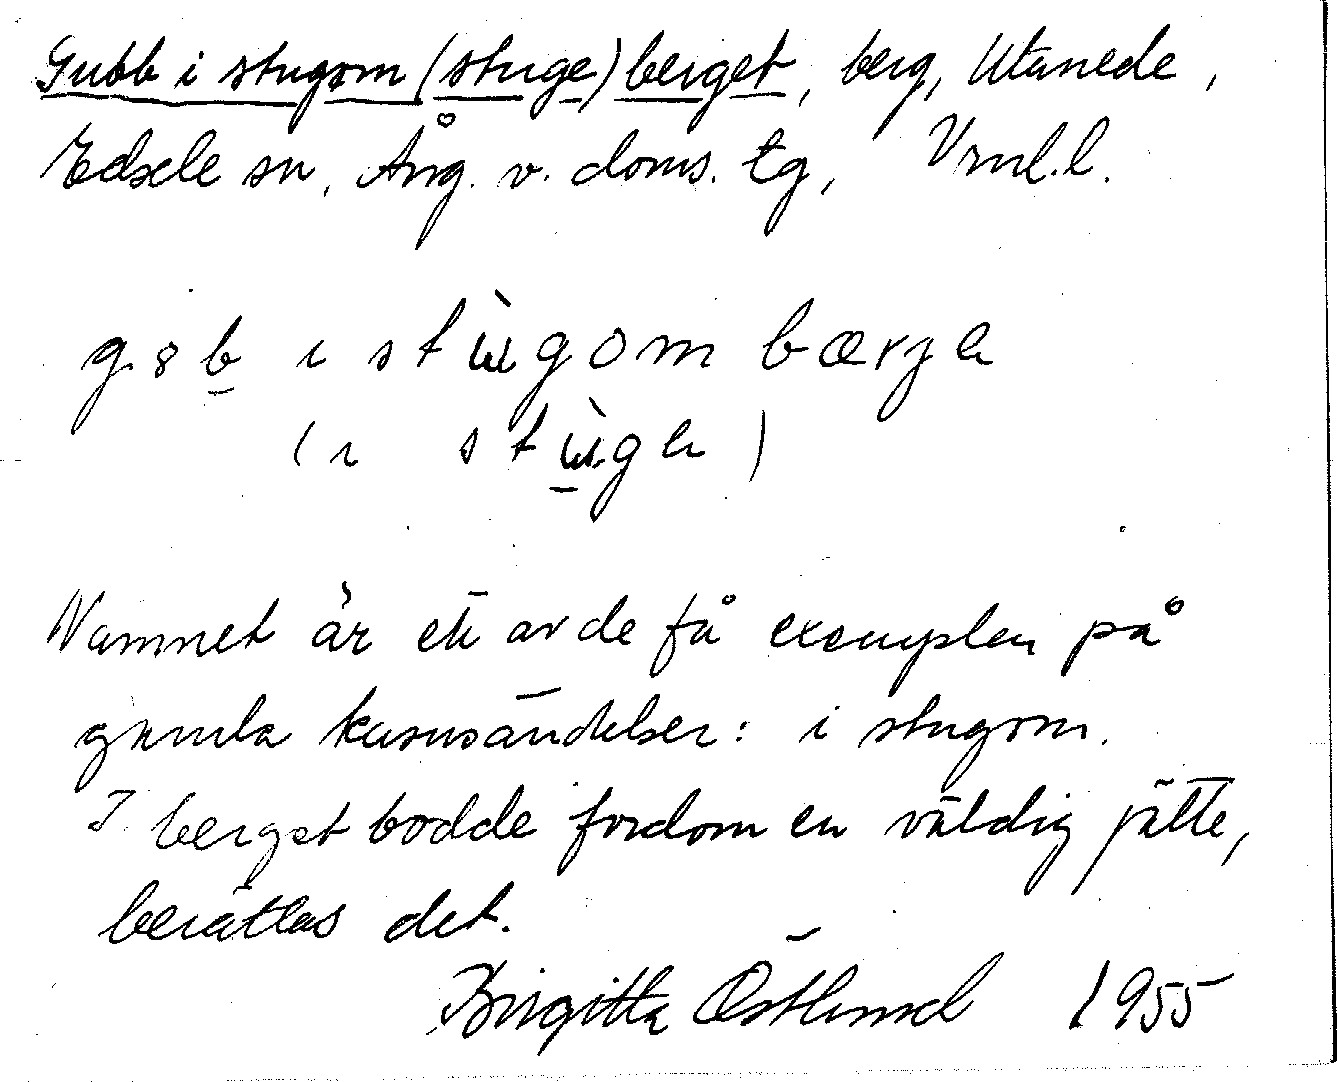 Gubb i stugom (stuge) berget, berg, Utanede,
Edsele sn, Ång. v. doms. tg, Vrnl. l.
g8b i stùgom bærja
(i stùga)
Namnet är ett av de få exemplen på
gamla kasusändelser: i stugom.
I berget bodde fordom en väldig jätte,
berättas det.
Birgitta Östlund 1955